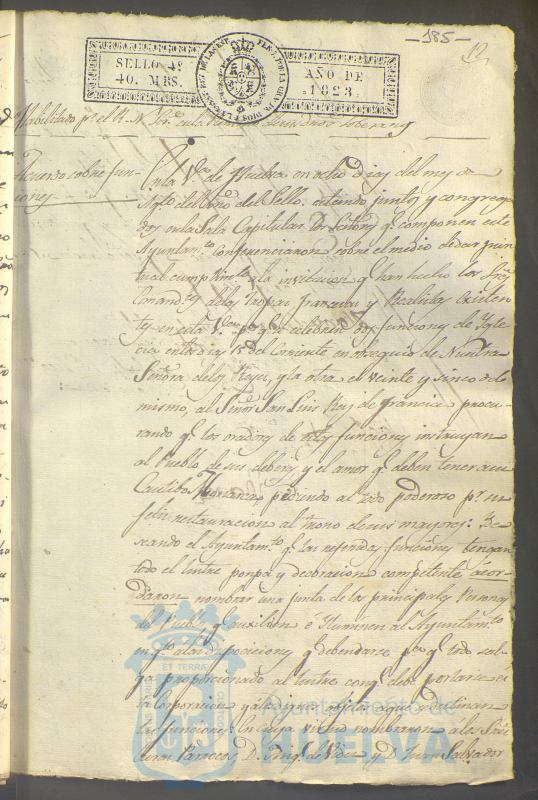 185
12
SELLO 4º
40. MRS.
AÑO DE
1823.
Habilitado pr. el R. N. Sr.
Acuerdo sobre fun-
ciones
En la Va. de Huelva en ocho dias del mes de
Agto. del año del Sello. estando juntos y congrega
dos en la Sala Capitular los Señores qe. componen este
Ayuntamto. conferenciaron sobre el medio de dar pun
tual cumplimto. a la invitacion qe. han hecho los Sres.
Comandtes. de las Tropas francesas y Realistas existen
tes en esta Va. pa. qe. se celebren dos funciones de Igle
cia en los dias 15 del Corriente en obsequio de Nuestra
Señora de los Reyes, y la otra el veinte y sinco de lo
mismo, al Señor San Luis Rey de Francia procu-
rando qe. los oradores de estas funciones instruyan
al Pueblo de sus deberes y el amor qe. deben tener a su
Cautibo Monarca pidiendo al todo poderoso pr. su
feliz restauracion al trono de sus mayores: De-
seando el Ayuntamto. qe. las referidas funciones tengan
todo el lustre ponpa y decoracion competente acor-
daron nombrar una junta de las principales Personas
del Pueblo qe. auxilien e Iluminen al Ayuntamto.
en qto. a las disposiciones qe. deben darse pa. qe. todo sal
ga proporcionado al lustre con qe. debe portarse esta
Corporacion y a los justos objetos a que se destinan
las funciones: En cuya virtud nombraron a los Sres.
Curas Parrocos, D. de Vides y D. Juan Salvador
ET TERRAE
Ayuntamiento de
HUELVA